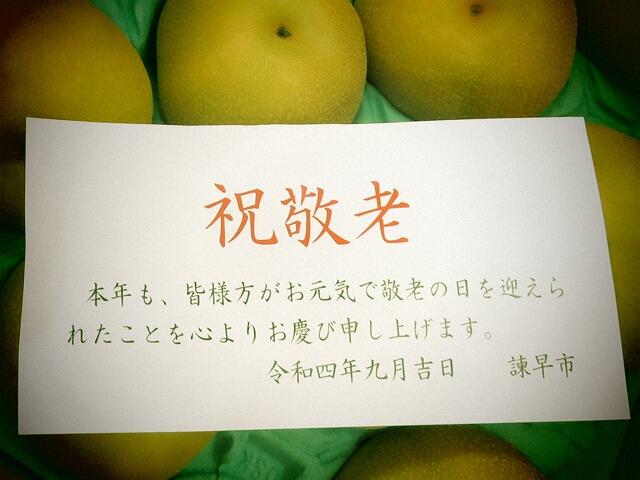 祝敬老
本年も、皆様方がお元気で敬老の日を迎えら
れたことを心よりお慶び申し上げます。
令和四年九月吉日 諫早市